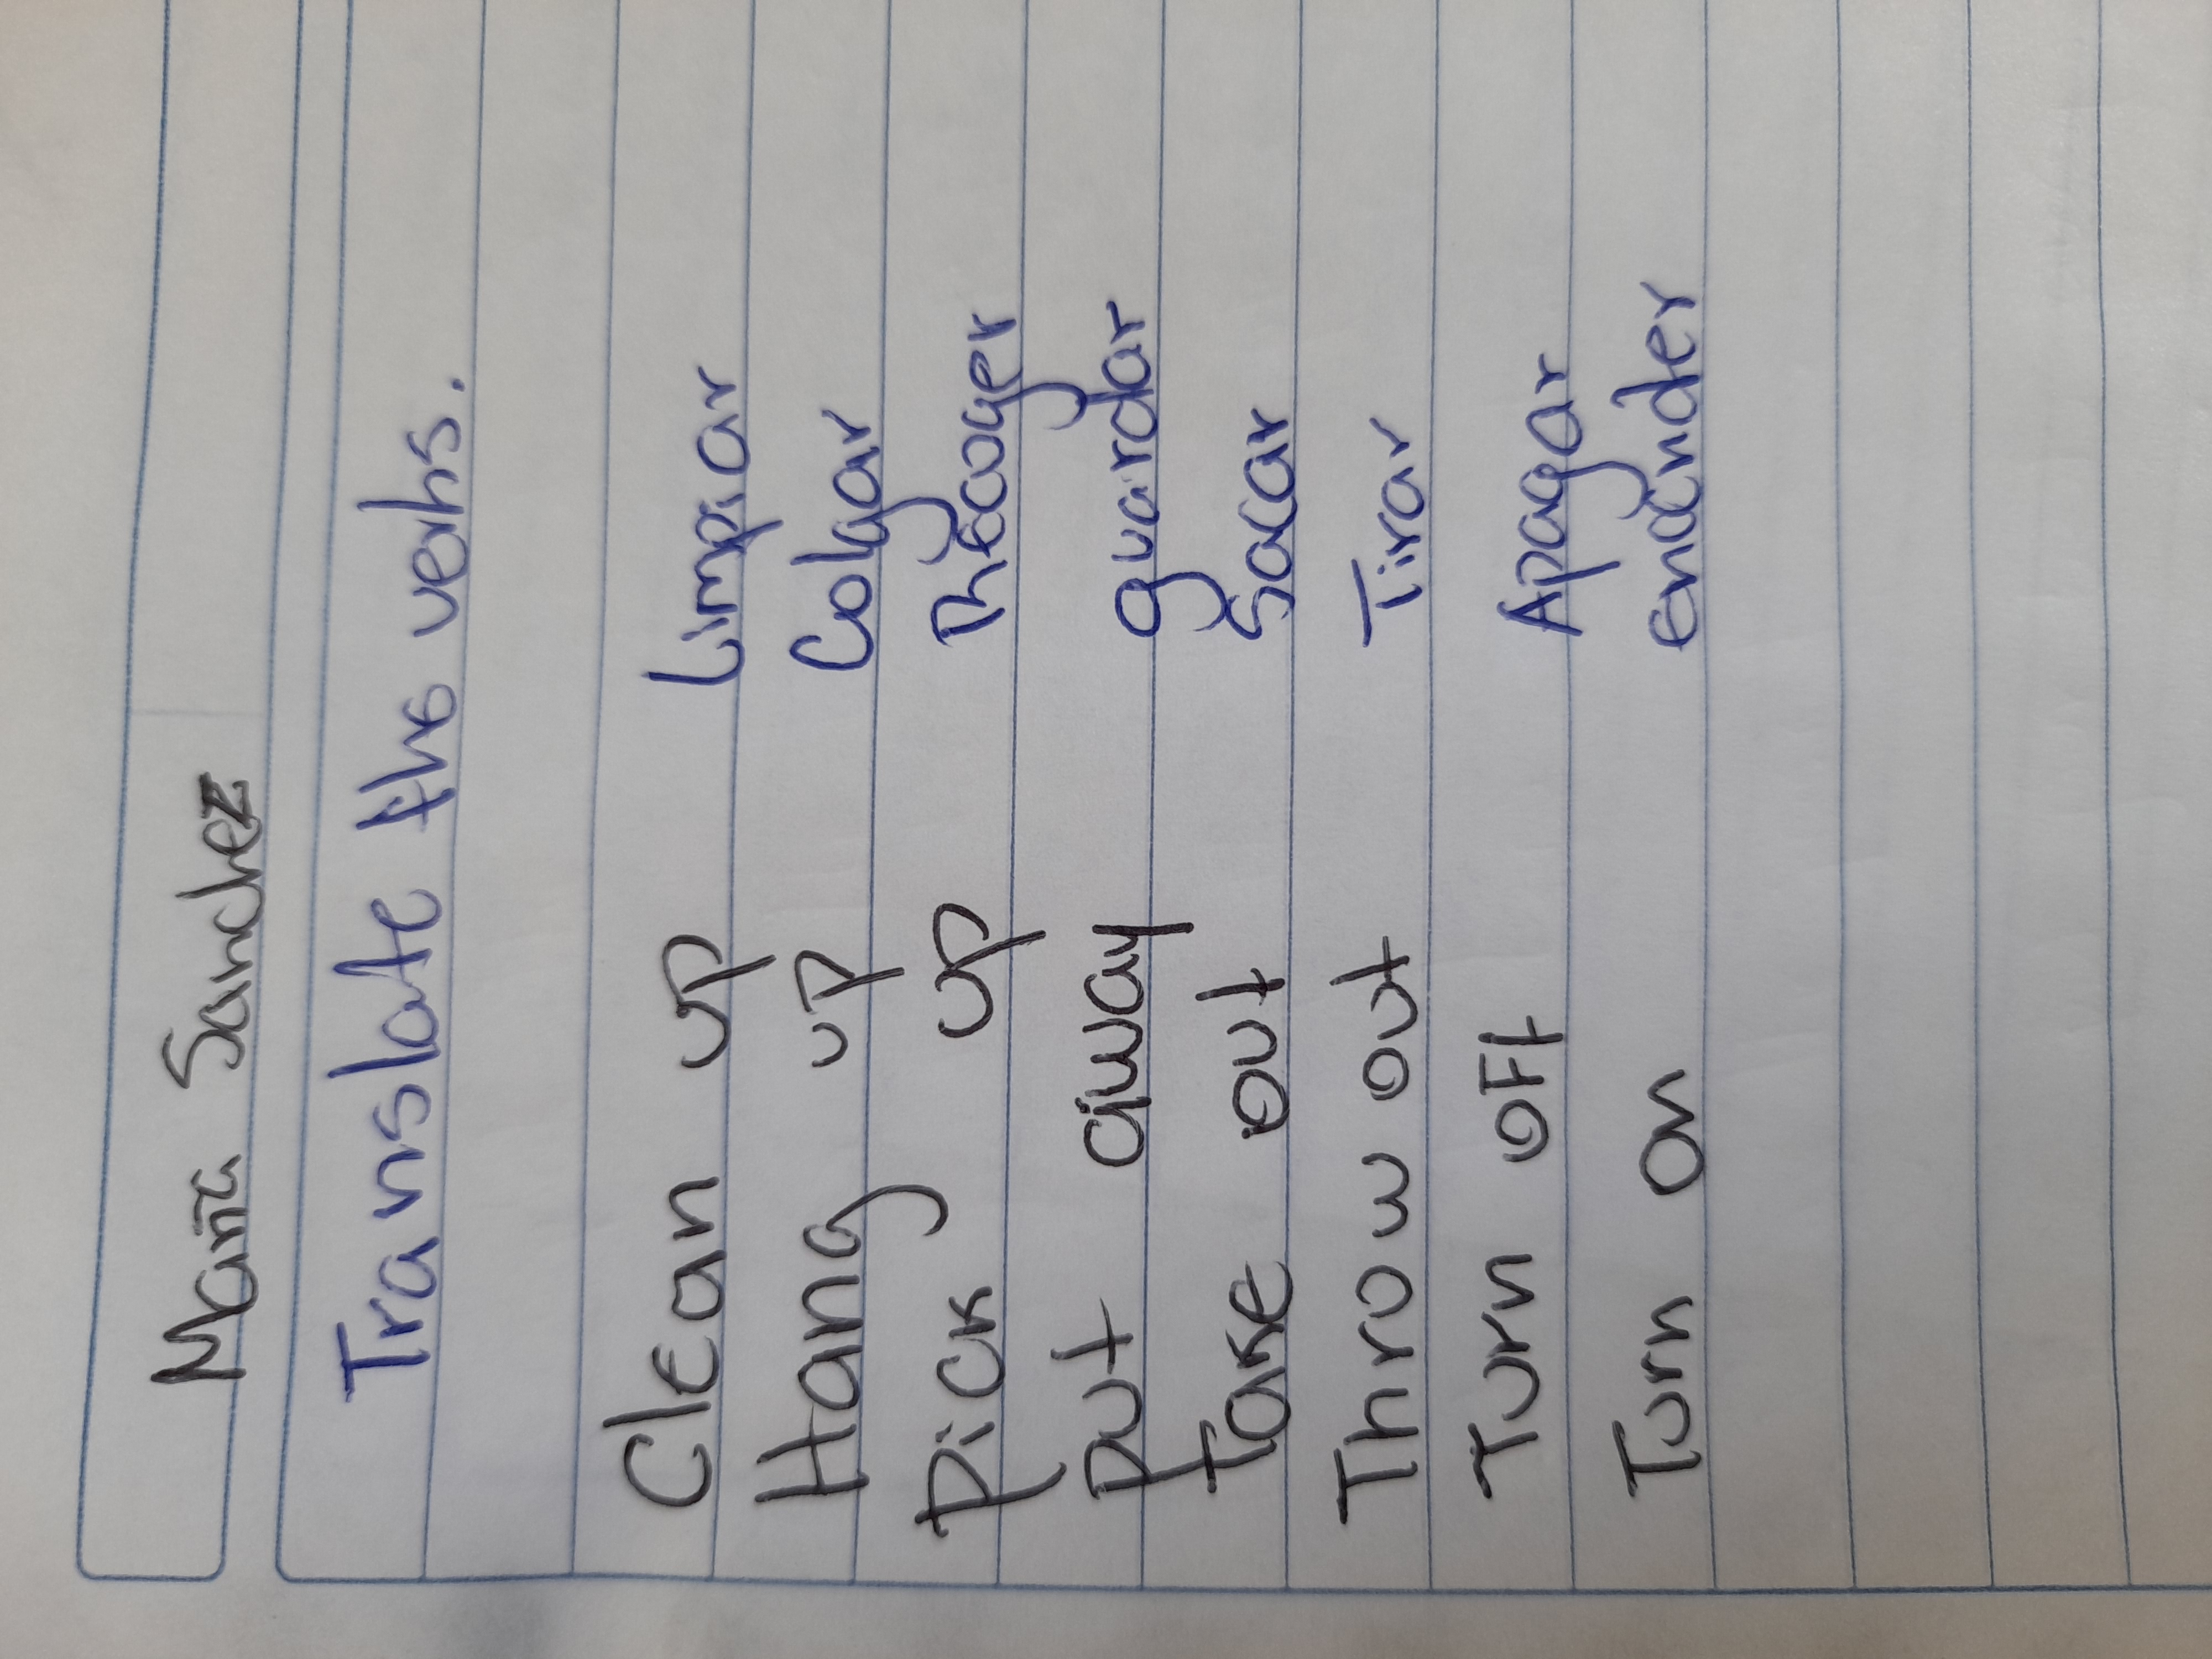 María Sanchez
Translate the verbs.
Clean up Limpiar
Hang up Colgar
Pick up Recoger
Put away guardar
Take out Sacar
Throw out Tirar
Turn off Apagar
Turn on encender